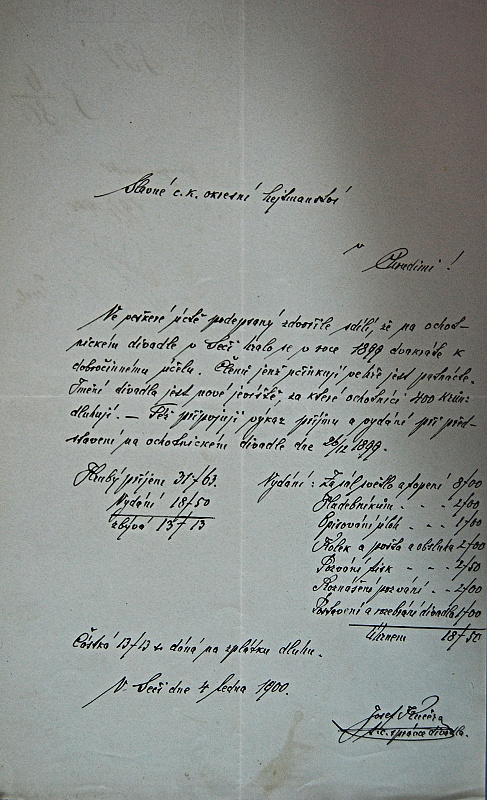 Slavné c.k. okresní hejtmanství
v
Chrudimi!
Ve veškeré úctě podepsaný zdvořile sdílí, že na ochot-
nickém divadle v Seči hrálo se v roce 1899 dvakráte k
dobročinnému účelu. Členů jenž účinkují ve hře jest patnáct.
Jmění divadla jest nové jeviště, za které ochotníci 400 K
dluhují. — Též připojuji výkaz příjmu a vydání při před-
stavení na ochotnickém divadle dne 26/12 1899.
Hrubý příjem 31 f 63.
Vydání 18 f 50
zbývá 13 f 13
Vydání: Za sál světlo a topení 8 f 00
Hudebníkům - - - 2 f 00
Opisování úloh - - 1 f 00
Kolek a pošta a obsluha 2 f 00
Pozvání tisk - - - 2 f 50
Roznášení pozvání - - 2 f 00
Postavení a rozebrání divadla 1 f 00
Úhrnem 18 f 50
Částka 13 f 13 dána na splátku dluhu.
V Seči dne 4 ledna 1900.
Josef Kučera
t.č. správce divadla.